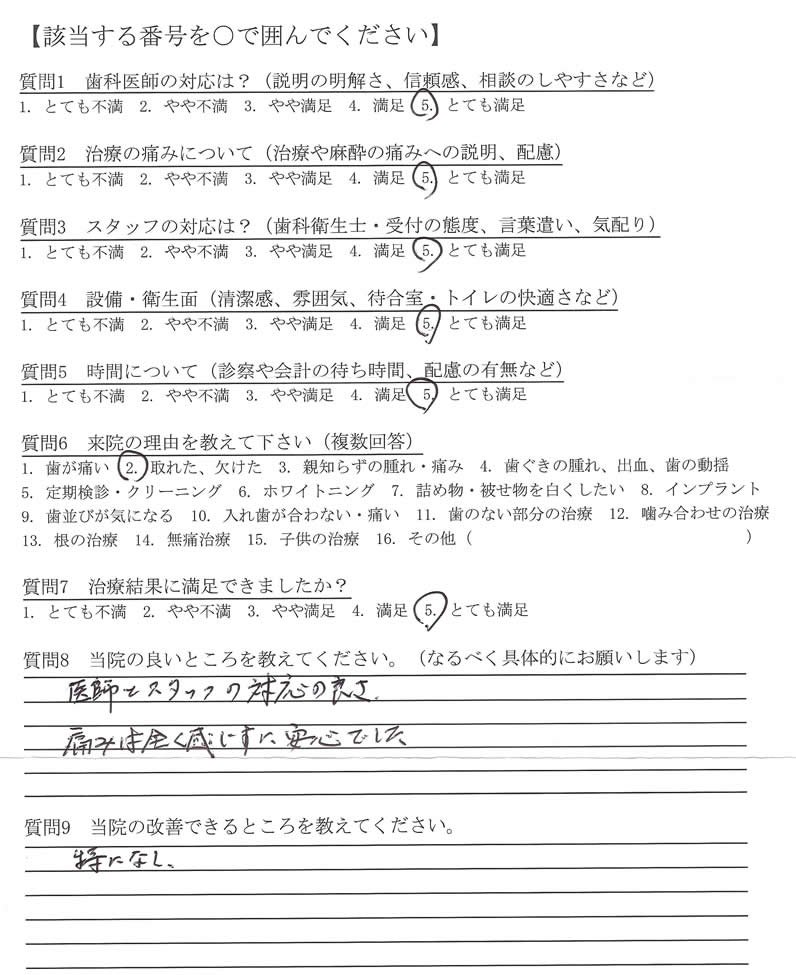 【該当する番号を〇で囲んでください】
質問1 歯科医師の対応は？（説明の明解さ、信頼感、相談のしやすさなど）
1. とても不満 2. やや不満 3. やや満足 4. 満足 5. とても満足
質問2 治療の痛みについて（治療や麻酔の痛みへの説明、配慮）
1. とても不満 2. やや不満 3. やや満足 4. 満足 5. とても満足
質問3 スタッフの対応は？（歯科衛生士・受付の態度、言葉遣い、気配り）
1. とても不満 2. やや不満 3. やや満足 4. 満足 5. とても満足
質問4 設備・衛生面（清潔感、雰囲気、待合室・トイレの快適さなど）
1. とても不満 2. やや不満 3. やや満足 4. 満足 5. とても満足
質問5 時間について（診察や会計の待ち時間、配慮の有無など）
1. とても不満 2. やや不満 3. やや満足 4. 満足 5. とても満足
質問6 来院の理由を教えて下さい（複数回答）
1. 歯が痛い 2. 取れた、欠けた 3. 親知らずの腫れ・痛み 4. 歯ぐきの腫れ、出血、歯の動揺
5. 定期検診・クリーニング 6. ホワイトニング 7. 詰め物・被せ物を白くしたい 8. インプラント
9. 歯並びが気になる 10. 入れ歯が合わない・痛い 11. 歯のない部分の治療 12. 噛み合わせの治療
13. 根の治療 14. 無痛治療 15. 子供の治療 16. その他（ ）
質問7 治療結果に満足できましたか？
1. とても不満 2. やや不満 3. やや満足 4. 満足 5. とても満足
質問8 当院の良いところを教えてください。（なるべく具体的にお願いします）
医師とスタッフの対応の良さ、
痛みは全く感じずに安心でした
質問9 当院の改善できるところを教えてください。
特になし、